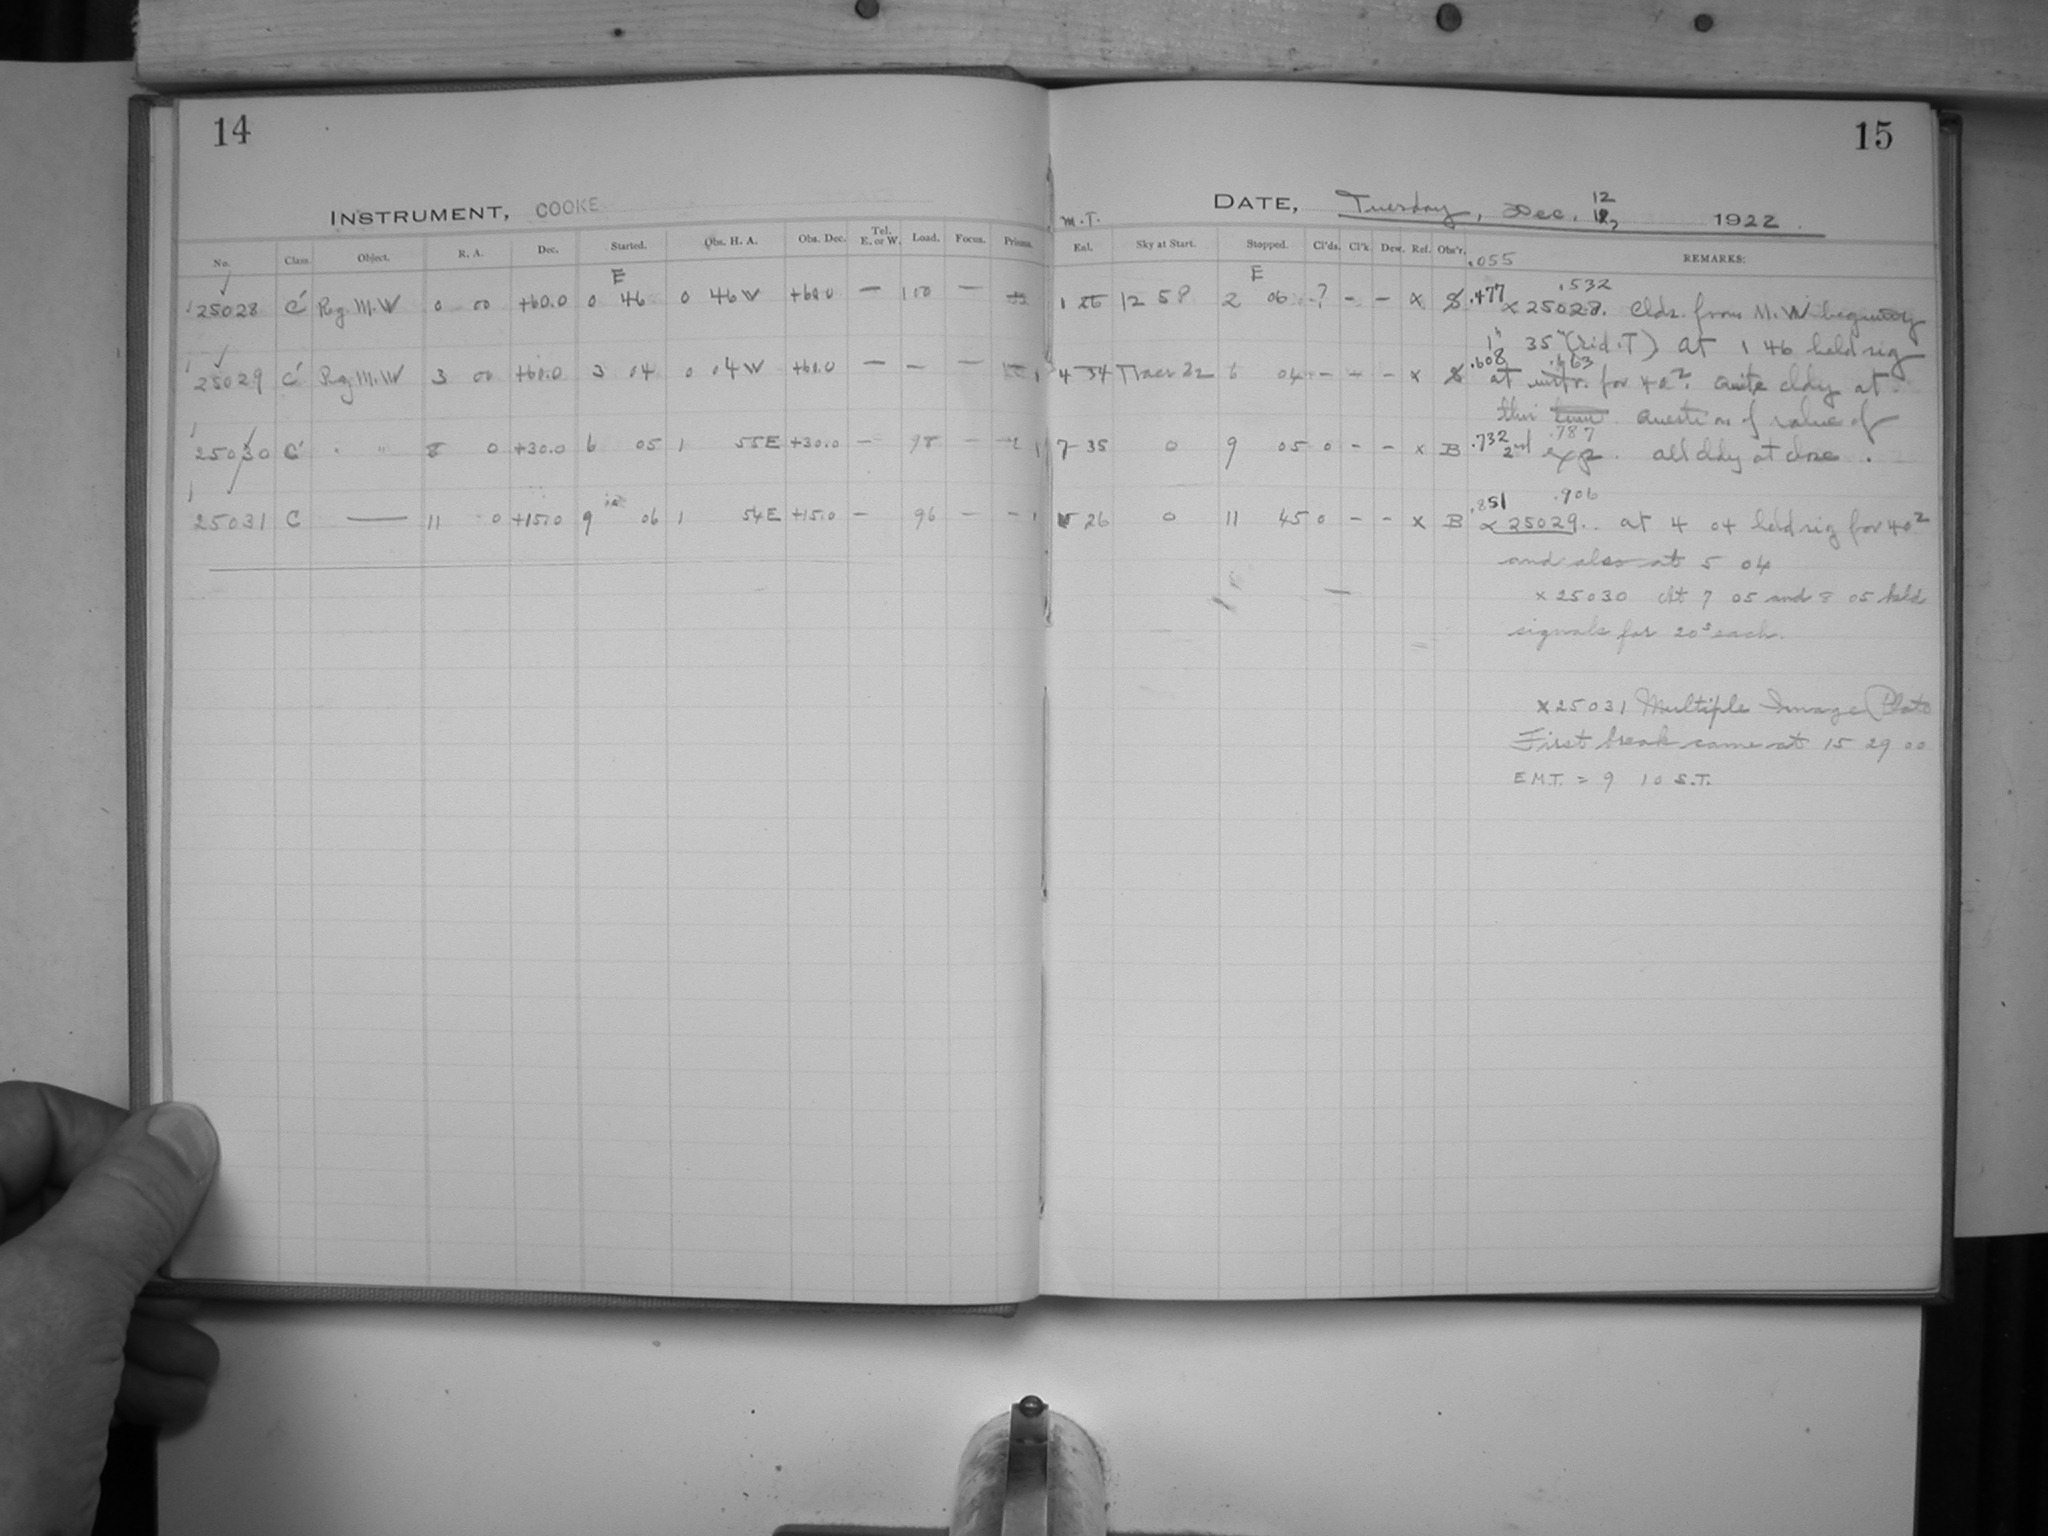 14
INSTRUMENT, COOKE
No. Class. Object. R. A. Dec. Started. Obs. H. A. Obs. Dec. Tel. E. or W. Load. Focus. Prisms.
E
25028 C' Rg. M.W 0 00 +60.0 0 46 0 46 W +60.0 — 100 —
25029 C' Rg M.W 3 00 +60.0 3 04 0 04 W +60.0 — — —
25030 C' " " 8 0 +30.0 6 05 1 55E +30.0 — 98 —
25031 C — 11 0 +15.0 9 06 1 54E +15.0 — 96 — —
15
DATE, Tuesday, Dec. 12 1922
M.T.
Exl. Sky at Start. Stopped. Cl'ds. Cl'k. Dew. Ref. Obs'r. REMARKS:
.055
E
1 20 12 58 2 06 ? - - x S .477 .532
x 25028. Clds. from M.W beginning
1h 35m (sid. T) at 1 46 held sig
4 34 6 04 - - - x S .608 .663
at instr. for 40s. Quite cldy at
this time Question of value of
7 35 0 9 05 0 - - x B .732 .787
2nd exp. all cldy at close.
26 0 11 45 0 - - x B .851 .906
x 25029. at 4 04 held sig for 40s
and also at 5 04
x 25030 At 7 05 and 8 05 held
signals for 20s each.
x 25031 Multiple Image Plate
First break came at 15 29 00
E.M.T. = 9 10 S.T.